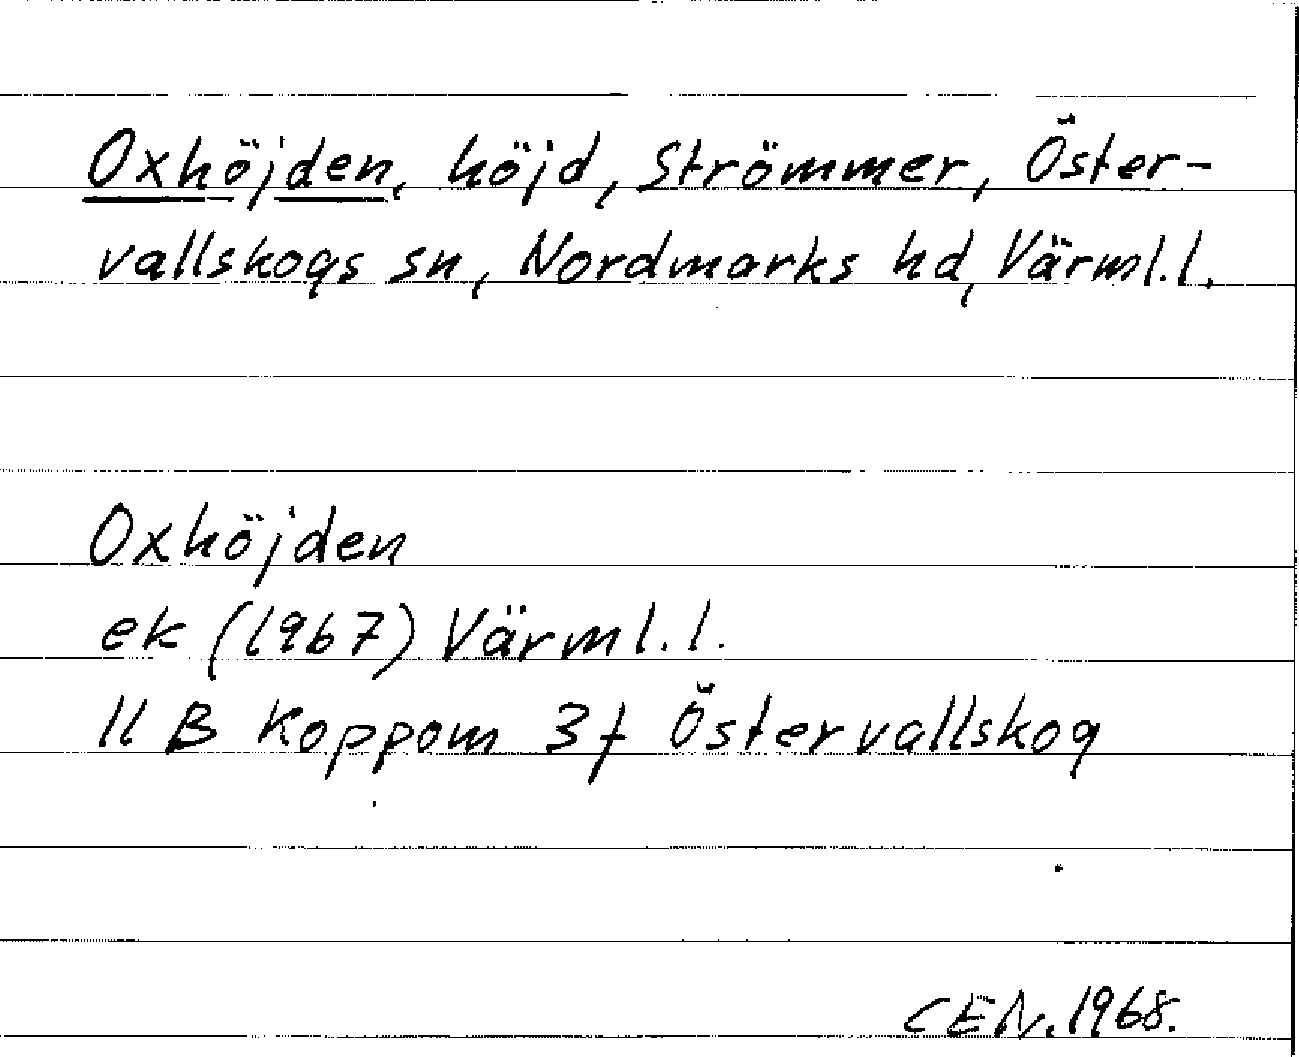 Oxhöjden, höjd, Strömmer, Öster-
vallskogs sn, Nordmarks hd, Värml.l.
Oxhöjden
ek (1967) Värml.l.
11 B Koppom 3f Östervallskog
CEN. 1968.